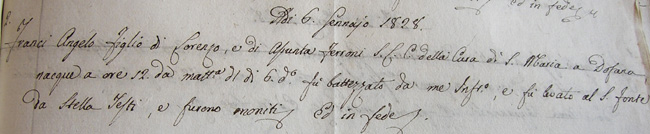 Ed in fede
Adi 6. Gennajo 1828.
2. Franci Angelo figlio di Lorenzo, e di Assunta Ferroni S.C.C. della Cura di S. Maria a Dofana
nacque a ore 12. da matt.ª del dì 6. d.º fù battezzato da me Infr.º, e fù levato al S. Fonte
da Stella Testi, e furono moniti Ed in fede